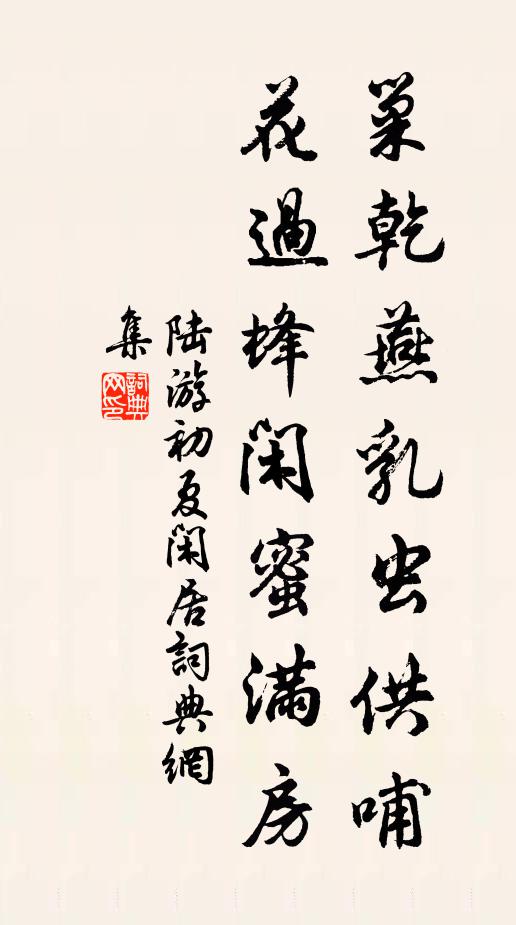 巢乾燕乳虫供哺
花過蜂閑蜜滿房
陆游初夏閑居詞典網
集
詞典
网印